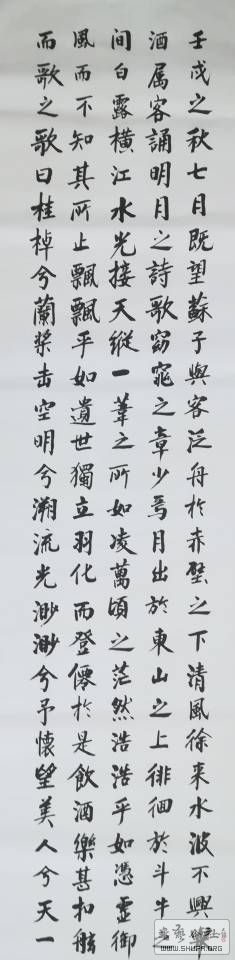 壬戌之秋七月既望蘇子與客泛舟於赤壁之下清風徐來水波不興舉
酒属客誦明月之詩歌窈窕之章少焉月出於東山之上徘徊於斗牛之
間白露橫江水光接天縱一葦之所如凌萬頃之茫然浩浩乎如憑虛御
風而不知其所止飄飄乎如遺世獨立羽化而登僊於是飲酒樂甚扣舷
而歌之歌曰桂棹兮蘭槳击空明兮溯流光渺渺兮予懷望美人兮天一